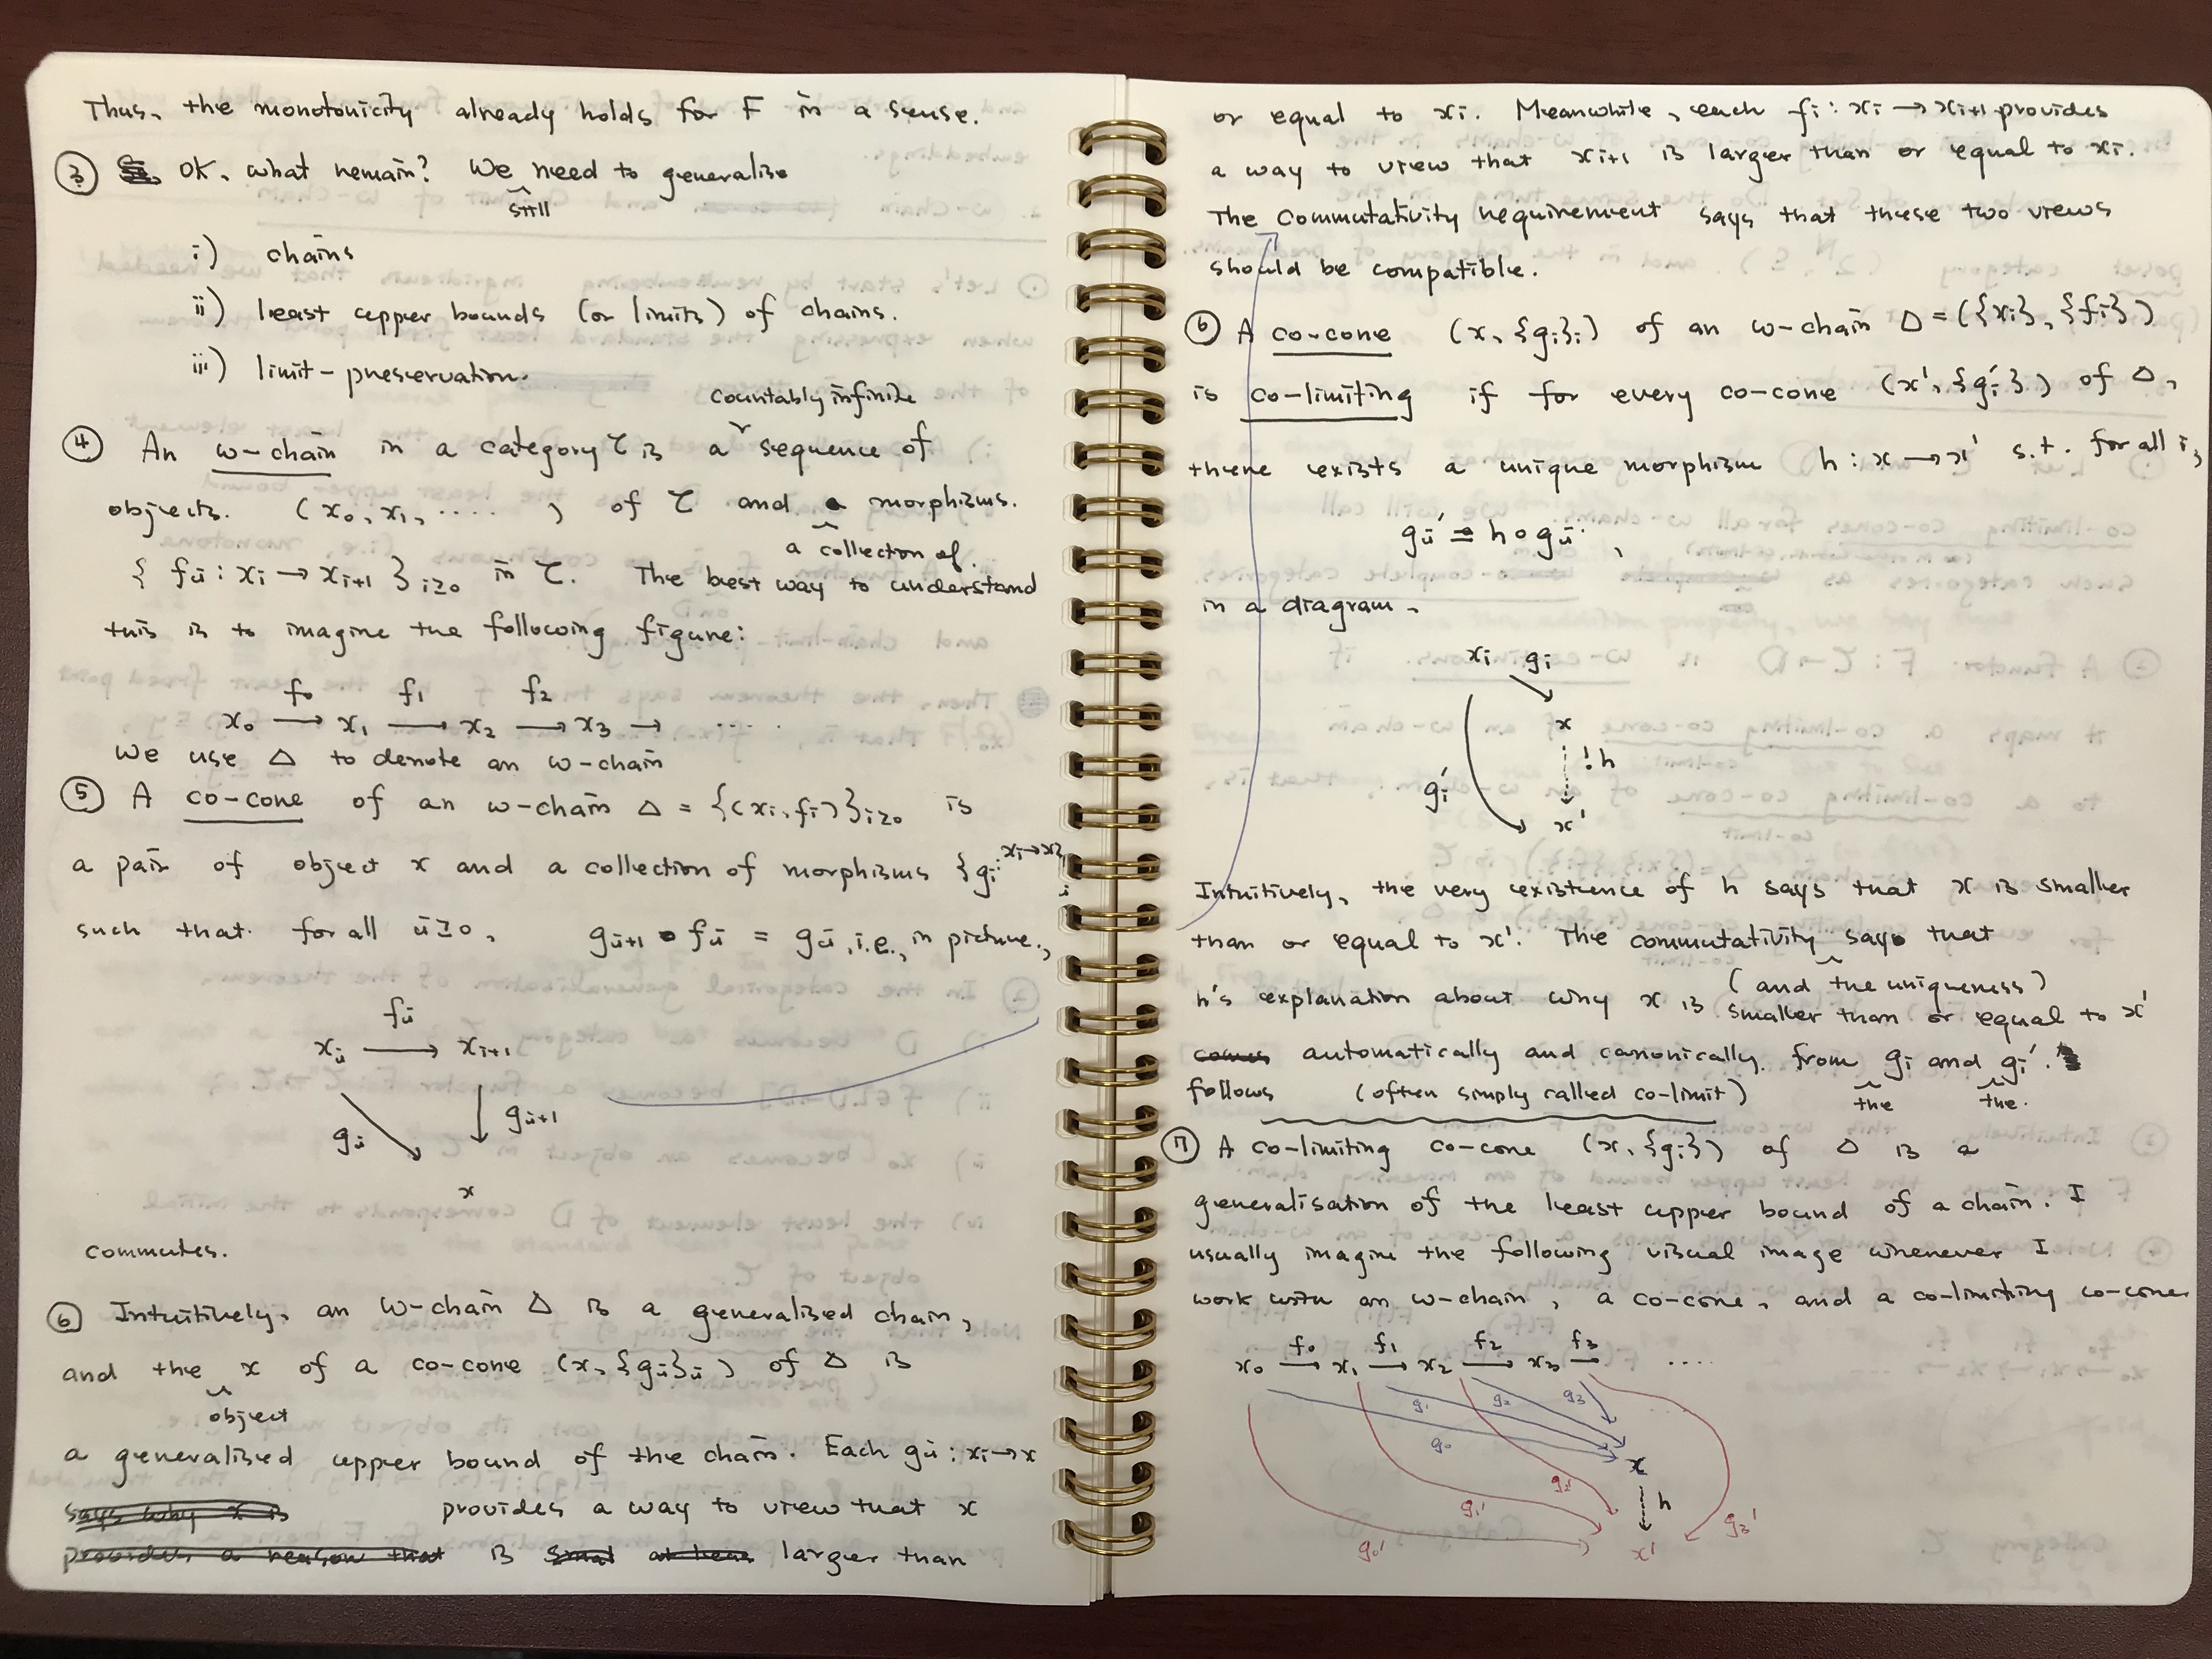 Thus, the monotonicity already holds for F in a sense.
③ OK, what remain? We still need to generalise
i) chains
ii) least upper bounds (or limits) of chains.
iii) limit-preservation.
④ An ω-chain in a category 𝒞 is a countably infinite sequence of
objects (x₀, x₁, ....., ) of 𝒞 and a collection of morphisms.
{ fᵢ : xᵢ → xᵢ₊₁ }ᵢ≥₀ in 𝒞. The best way to understand
this is to imagine the following figure:
f₀ f₁ f₂
x₀ → x₁ → x₂ → x₃ → .....
We use Δ to denote an ω-chain
⑤ A co-cone of an ω-chain Δ = {(xᵢ, fᵢ)}ᵢ≥₀ is
a pair of object x and a collection of morphisms {gᵢ : xᵢ→x}ᵢ
such that for all i≥0, gᵢ₊₁ ∘ fᵢ = gᵢ, i.e., in picture,
fᵢ
xᵢ → xᵢ₊₁
gᵢ gᵢ₊₁
x
commutes.
⑥ Intuitively, an ω-chain Δ is a generalised chain,
and the object x of a co-cone (x, {gᵢ}ᵢ) of Δ is
a generalised upper bound of the chain. Each gᵢ : xᵢ→x
says why x is provides a way to view that x
provides a reason that is smal at leas larger than
or equal to xᵢ. Meanwhile, each fᵢ : xᵢ → xᵢ₊₁ provides
a way to view that xᵢ₊₁ is larger than or equal to xᵢ.
The commutativity requirement says that these two views
should be compatible.
⑥ A co-cone (x, {gᵢ}ᵢ) of an ω-chain Δ = ({xᵢ}, {fᵢ})
is co-limiting if for every co-cone (x', {gᵢ'}) of Δ,
there exists a unique morphism h : x → x' s.t. for all i,
gᵢ' = h ∘ gᵢ,
in a diagram,
xᵢ gᵢ
x
! h
gᵢ'
x'
Intuitively, the very existence of h says that x is smaller
than or equal to x'. The commutativity (and the uniqueness) says that
h's explanation about why x is smaller than or equal to x'
comes follows automatically and canonically from the gᵢ and the gᵢ'.
(often simply called co-limit)
⑦ A co-limiting co-cone (x, {gᵢ}) of Δ is a
generalisation of the least upper bound of a chain. I
usually imagine the following visual image whenever I
work with an ω-chain, a co-cone, and a co-limiting co-cone
f₀ f₁ f₂ f₃
x₀ → x₁ → x₂ → x₃ → ....
g₁ g₂ g₃ ....
g₀
x
g₁' g₂' h g₃'
g₀' x'